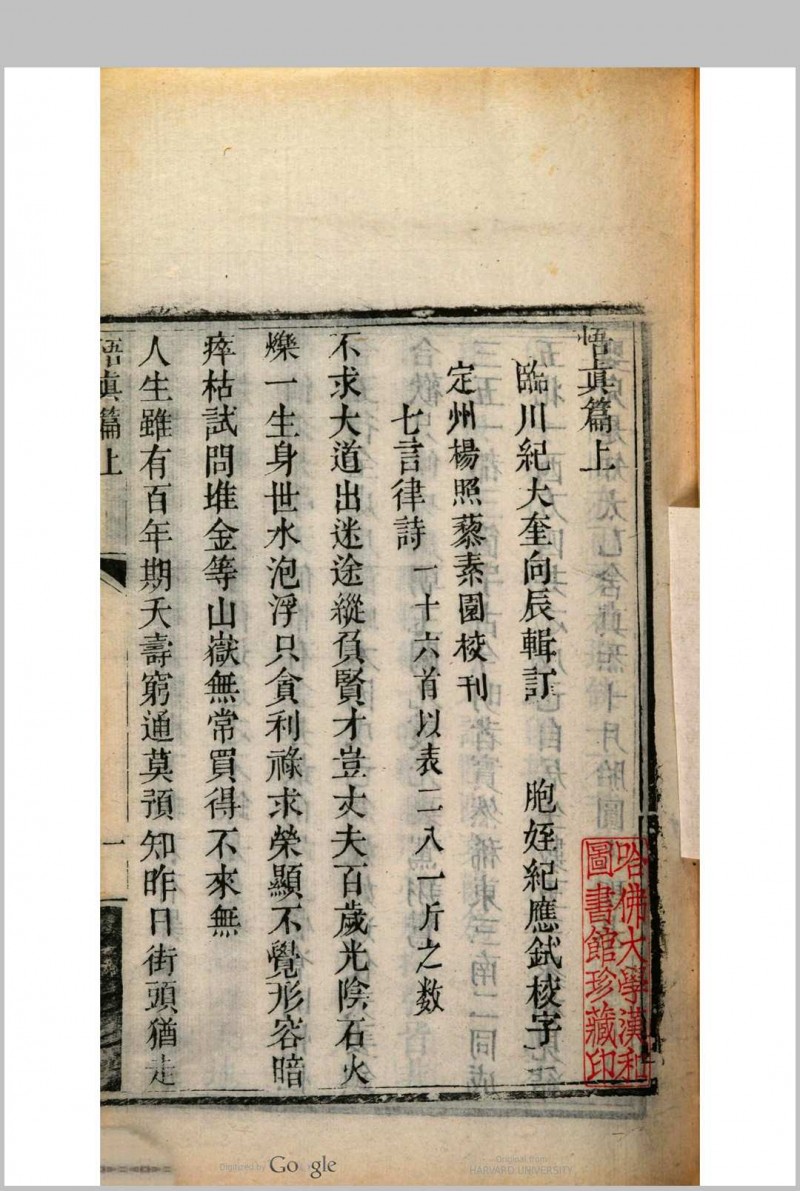 悟眞篇上
臨川紀大奎向辰輯訂 胞姪紀應鉽校字
定州楊照藜素園校刊
七言律詩一十六首以表二八一斤之数
不求大道出迷途縱負賢才豈丈夫百歲光陰石火
爍一生身世水泡浮只貪利祿求榮顯不覺形容暗
瘁枯試問堆金等山嶽無常買得不來無
人生雖有百年期夭壽窮通莫預知昨日街頭猶走
悟眞篇上
一
哈佛大學漢和
圖書館珍藏印
Digitized by Google
Original from
HARVARD UNIVERSITY